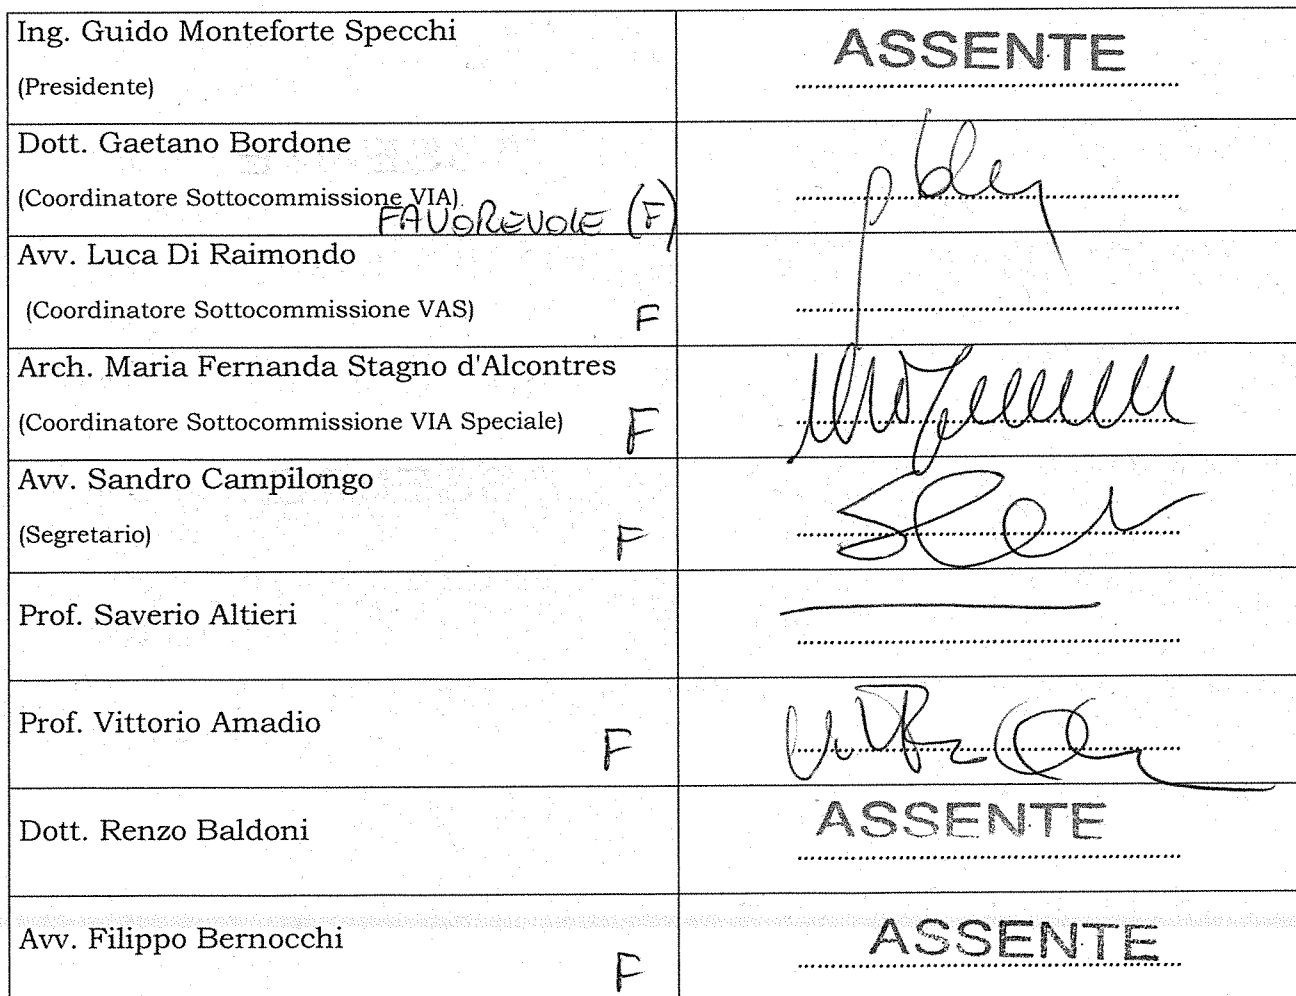 Ing. Guido Monteforte Specchi
(Presidente)
ASSENTE
Dott. Gaetano Bordone
(Coordinatore Sottocommissione VIA)
FAVOREVOLE (F)
Avv. Luca Di Raimondo
(Coordinatore Sottocommissione VAS)
F
Arch. Maria Fernanda Stagno d'Alcontres
(Coordinatore Sottocommissione VIA Speciale)
F
Avv. Sandro Campilongo
(Segretario)
F
Prof. Saverio Altieri
Prof. Vittorio Amadio
F
Dott. Renzo Baldoni
ASSENTE
Avv. Filippo Bernocchi
F
ASSENTE